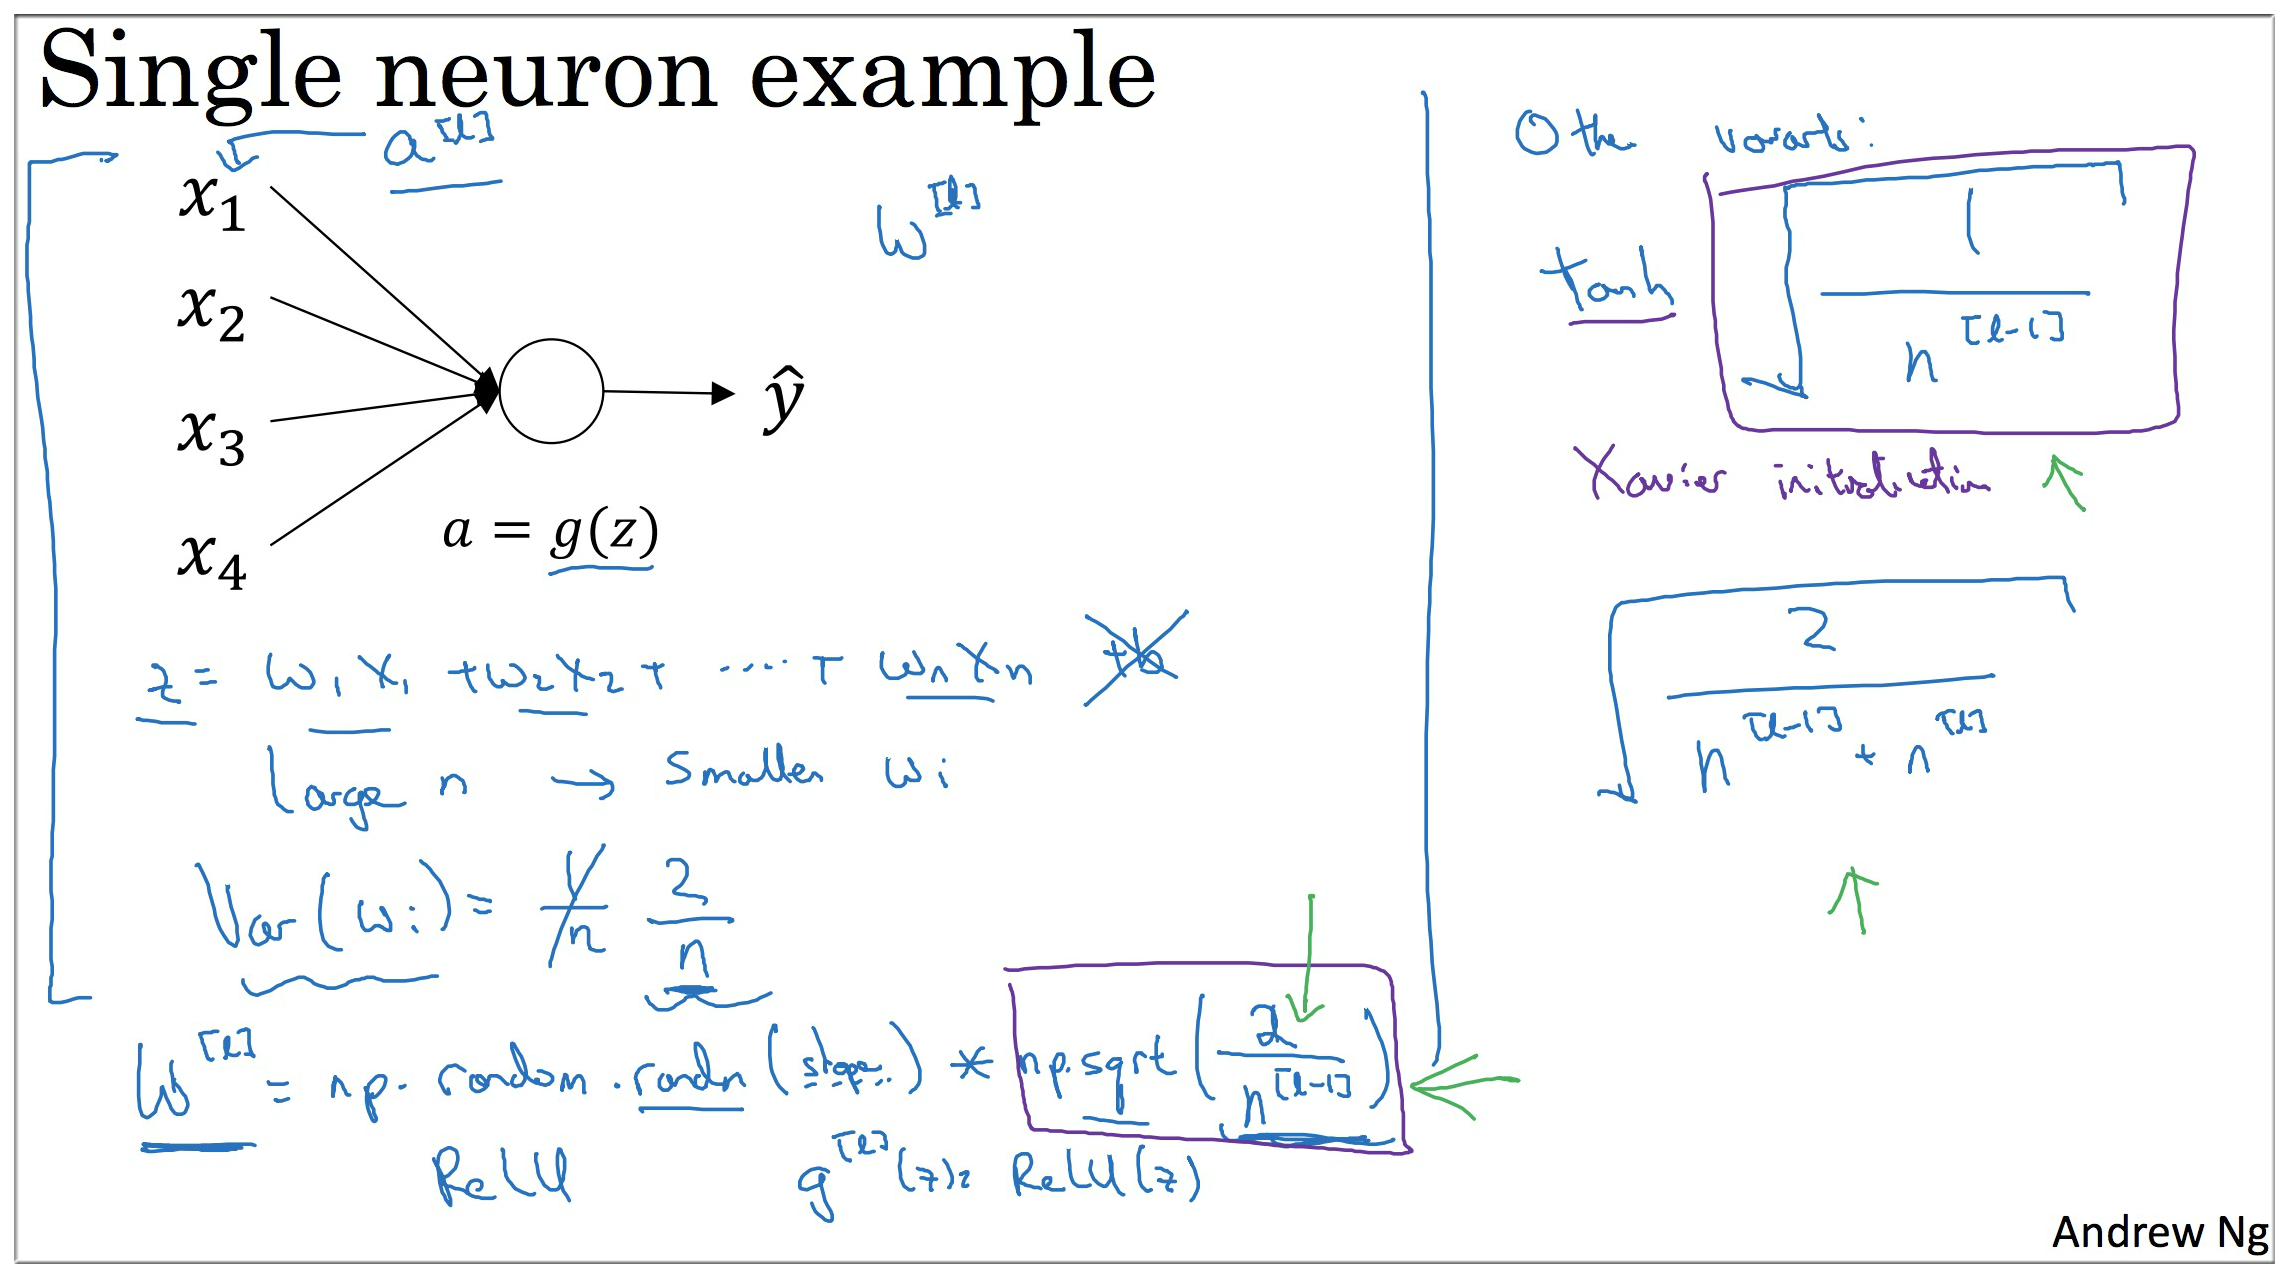 Single neuron example
a^[l]
x₁
x₂
x₃
x₄
W^[l]
ŷ
a = g(z)
z = w₁x₁ + w₂x₂ + ..... + wₙxₙ +b
Large n → Smaller wᵢ
Var(wᵢ) = 1/n 2/n
W^[l] = np.random.randn(shape) * np.sqrt(2/n^[l-1])
ReLU g^[l](z) = ReLU(z)
Other variants:
tanh √(1/n^[l-1])
Xavier initialization
√(2/(n^[l-1] + n^[l]))
Andrew Ng